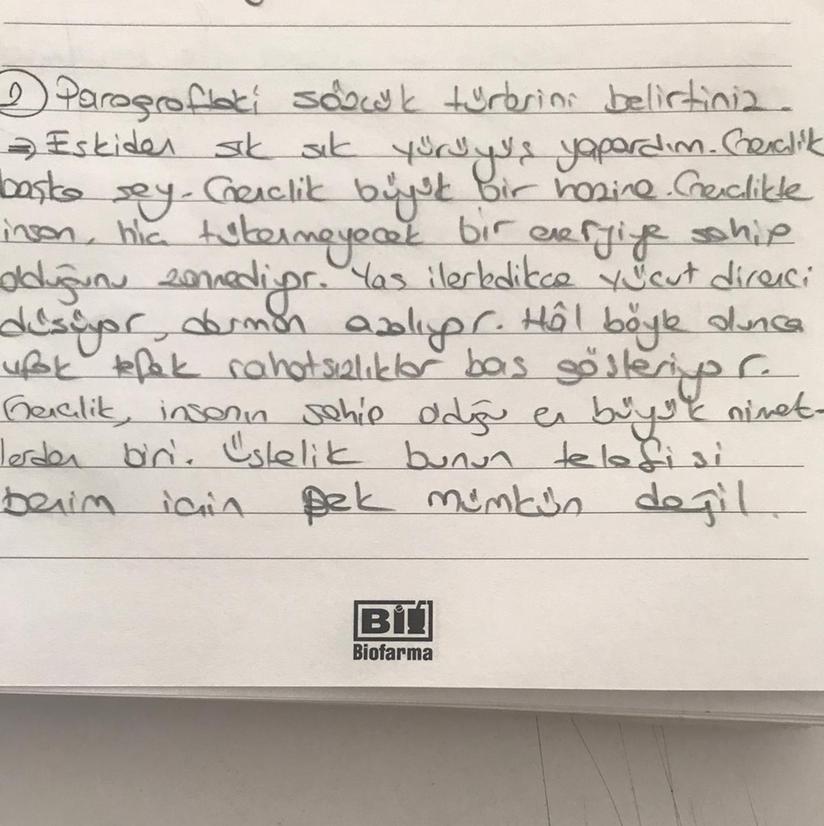 2 Paragraftaki sözcük türlerini belirtiniz.
⇒ Eskiden sık sık yürüyüş yapardım. Gençlik
başka şey. Gençlik büyük bir hazine. Gençlikte
insan, hiç tükenmeyecek bir enerjiye sahip
olduğunu zannediyor. Yaş ilerledikçe vücut direnci
düşüyor, derman azalıyor. Hâl böyle olunca
ufak tefek rahatsızlıklar baş gösteriyor.
Gençlik, insanın sahip olduğu en büyük nimet-
lerden biri. Üstelik bunun telafisi
benim için pek mümkün değil.
Biofarma